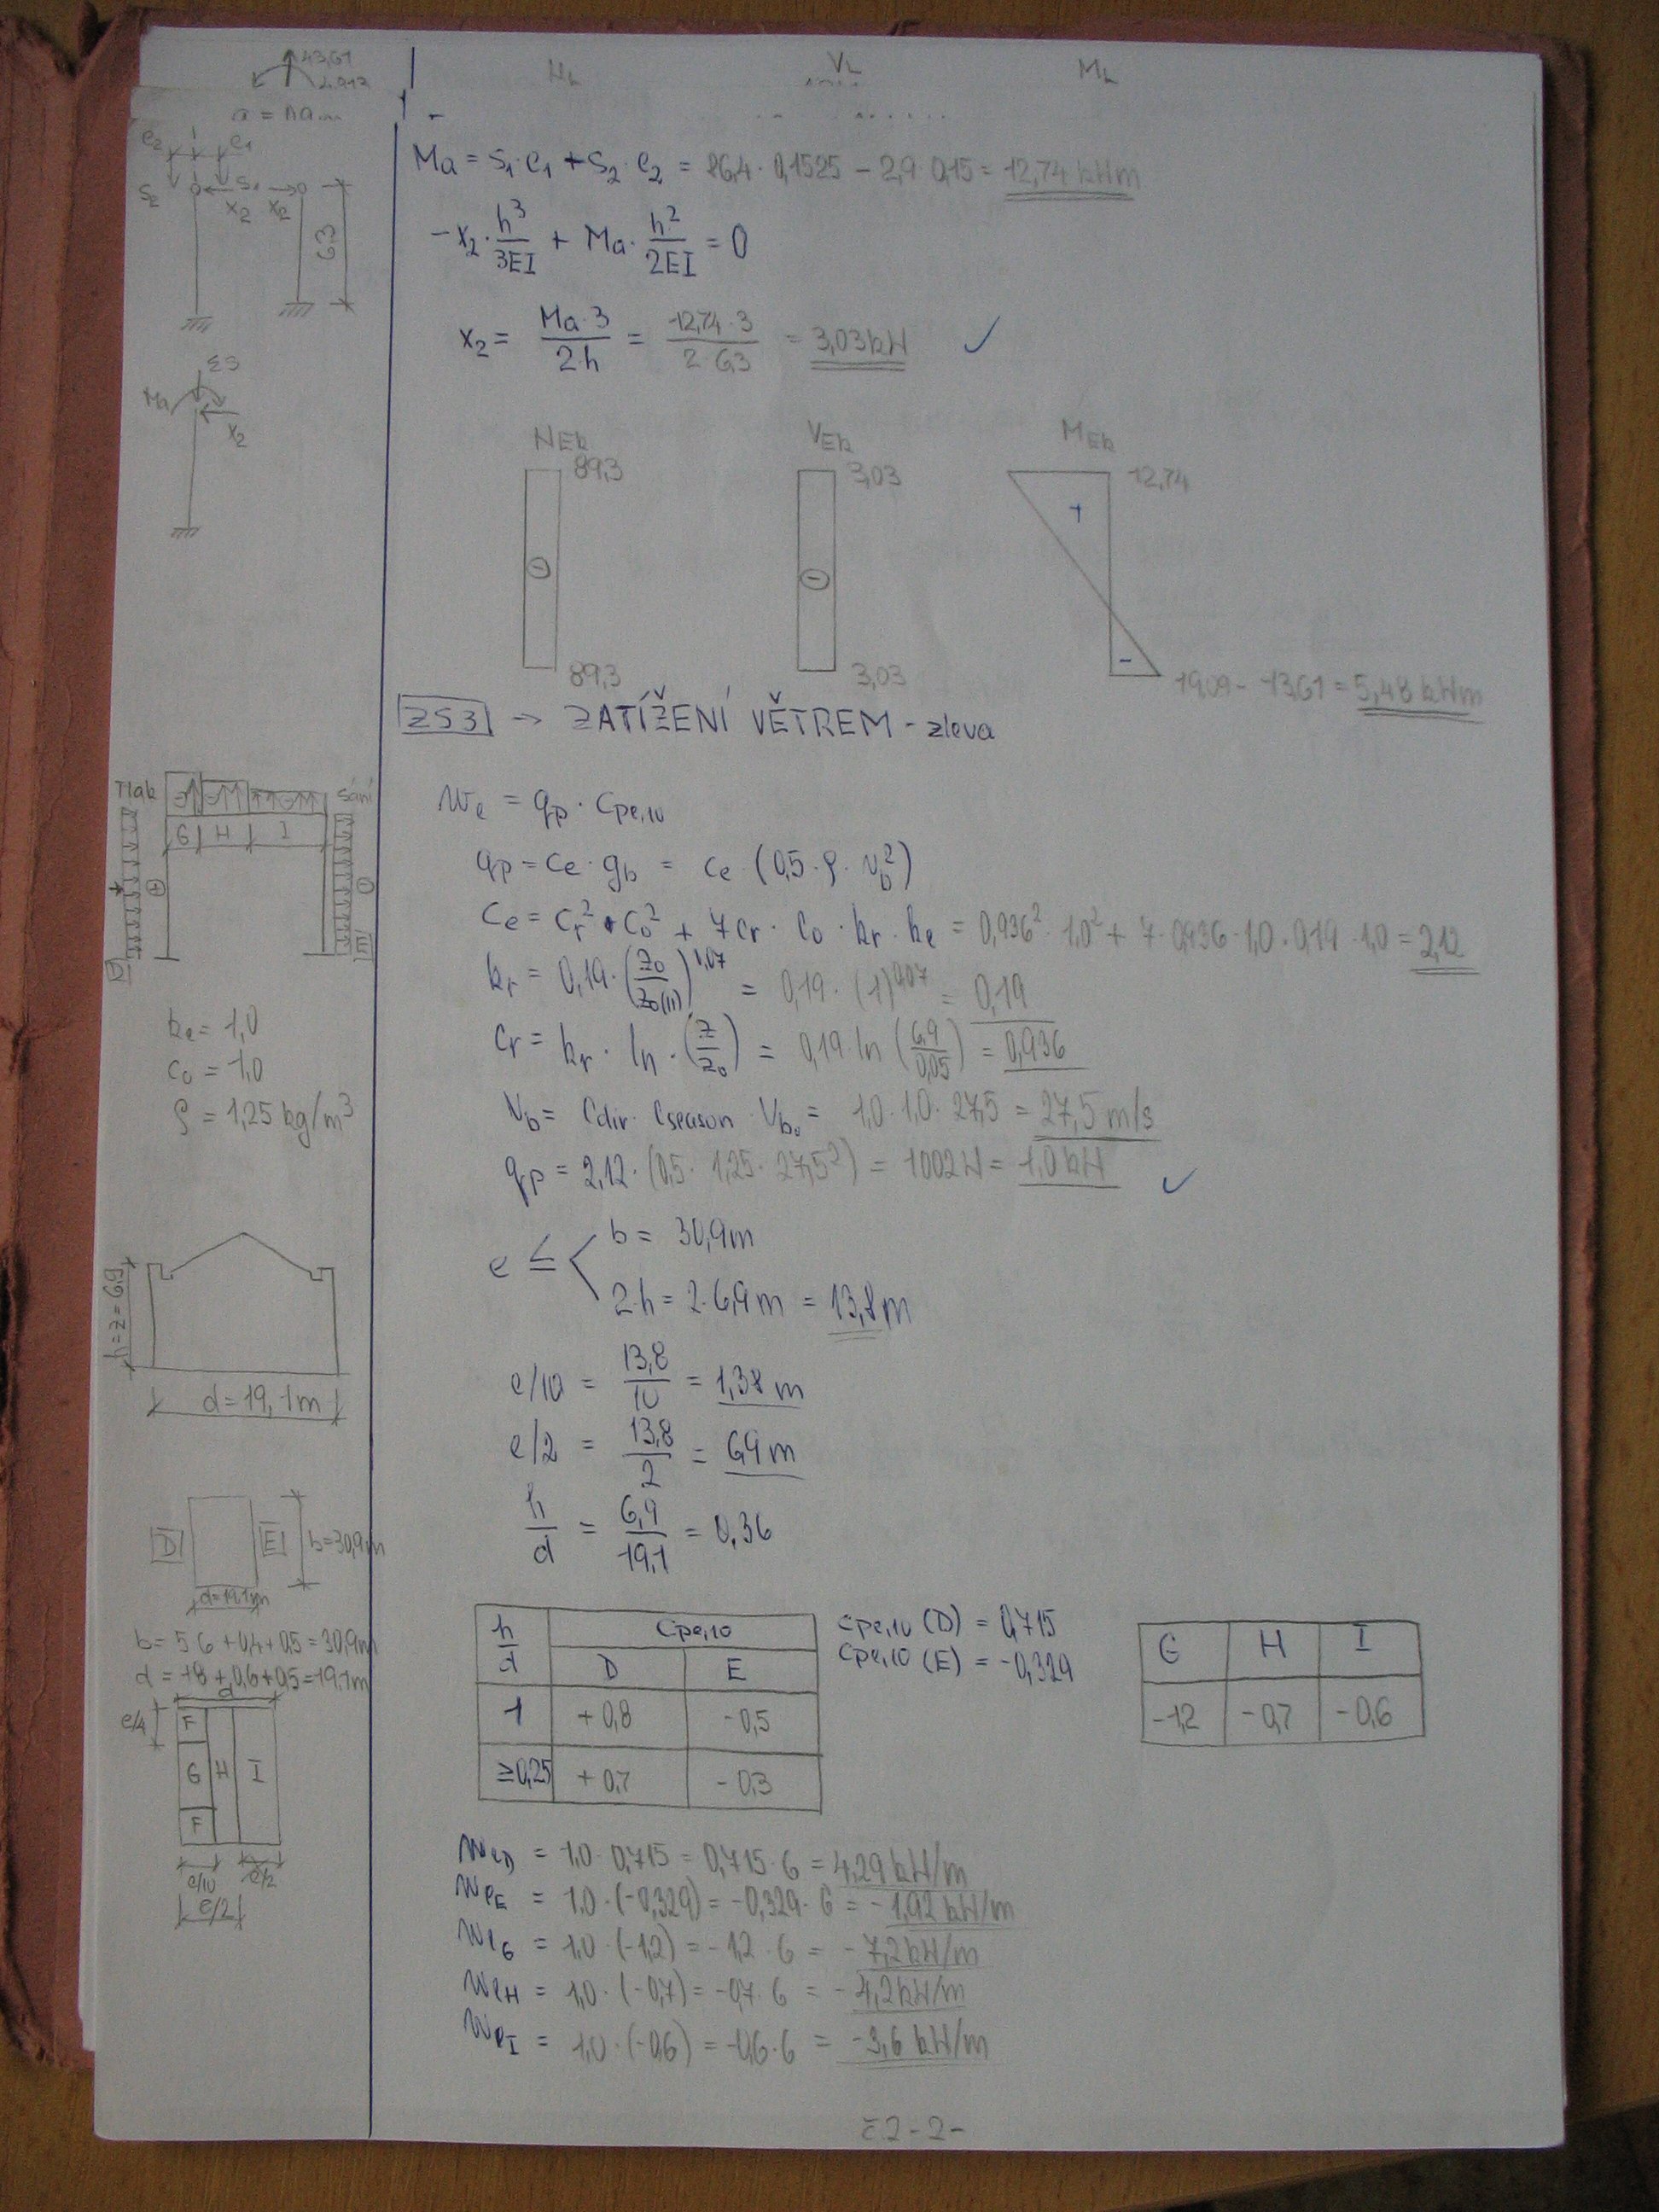 43,61
N_k V_k M_k
e2 e1
Ma = s1·e1 + s2·e2 = 86,4·0,1525 − 2,9·0,15 = 12,74 kNm
s2 s1
x2 x2
6,3
−x2·h³/3EI + Ma·h²/2EI = 0
x2 = Ma·3/2·h = 12,74·3/2·6,3 = 3,03 kN ✓
Ma
x2
N_Ek V_Ek M_Ek
89,3 3,03 12,74
− − +
89,3 3,03 − 19,09 − 13,61 = 5,48 kNm
ZS3 → ZATÍŽENÍ VĚTREM - zleva
Tlak Sání
G H I
+ −
D E
We = qp · Cpe,10
qp = Ce · qb = Ce · (0,5 · ρ · Vb²)
Ce = Cr² · Co² + 7Cr · Co · kr · ke = 0,936² · 1,0² + 7 · 0,936 · 1,0 · 0,19 · 1,0 = 2,12
kr = 0,19 · (z0/z0(II))^0,07 = 0,19 · (1)^0,07 = 0,19
Cr = kr · ln · (z/z0) = 0,19 · ln (6,9/0,05) = 0,936
ke = 1,0
Co = 1,0
ρ = 1,25 kg/m³
Vb = Cdir · Cseason · Vb0 = 1,0 · 1,0 · 27,5 = 27,5 m/s
qp = 2,12 · (0,5 · 1,25 · 27,5²) = 1002 N = 1,0 kN ✓
h = z = 6,9
d = 19,1m
e ≤ b = 30,9m
2·h = 2·6,9m = 13,8m
e/10 = 13,8/10 = 1,38 m
e/2 = 13,8/2 = 6,9 m
h/d = 6,9/19,1 = 0,36
D E b=30,9m
d=19,1m
b = 5·6 + 0,4 + 0,5 = 30,9m
d = 18 + 0,6 + 0,5 = 19,1m
h/d Cpe,10
D E
1 +0,8 −0,5
≥0,25 +0,7 −0,3
Cpe,10 (D) = 0,715
Cpe,10 (E) = −0,329
G H I
−1,2 −0,7 −0,6
d
e/4 F
G H I
F
e/10 e/2
e/2
WeD = 1,0 · 0,715 = 0,715 · 6 = 4,29 kN/m
WeE = 1,0 · (−0,329) = −0,329 · 6 = −1,92 kN/m
WeG = 1,0 · (−1,2) = −1,2 · 6 = −7,2 kN/m
WeH = 1,0 · (−0,7) = −0,7 · 6 = −4,2 kN/m
WeI = 1,0 · (−0,6) = −0,6 · 6 = −3,6 kN/m
č.2 - 2 -